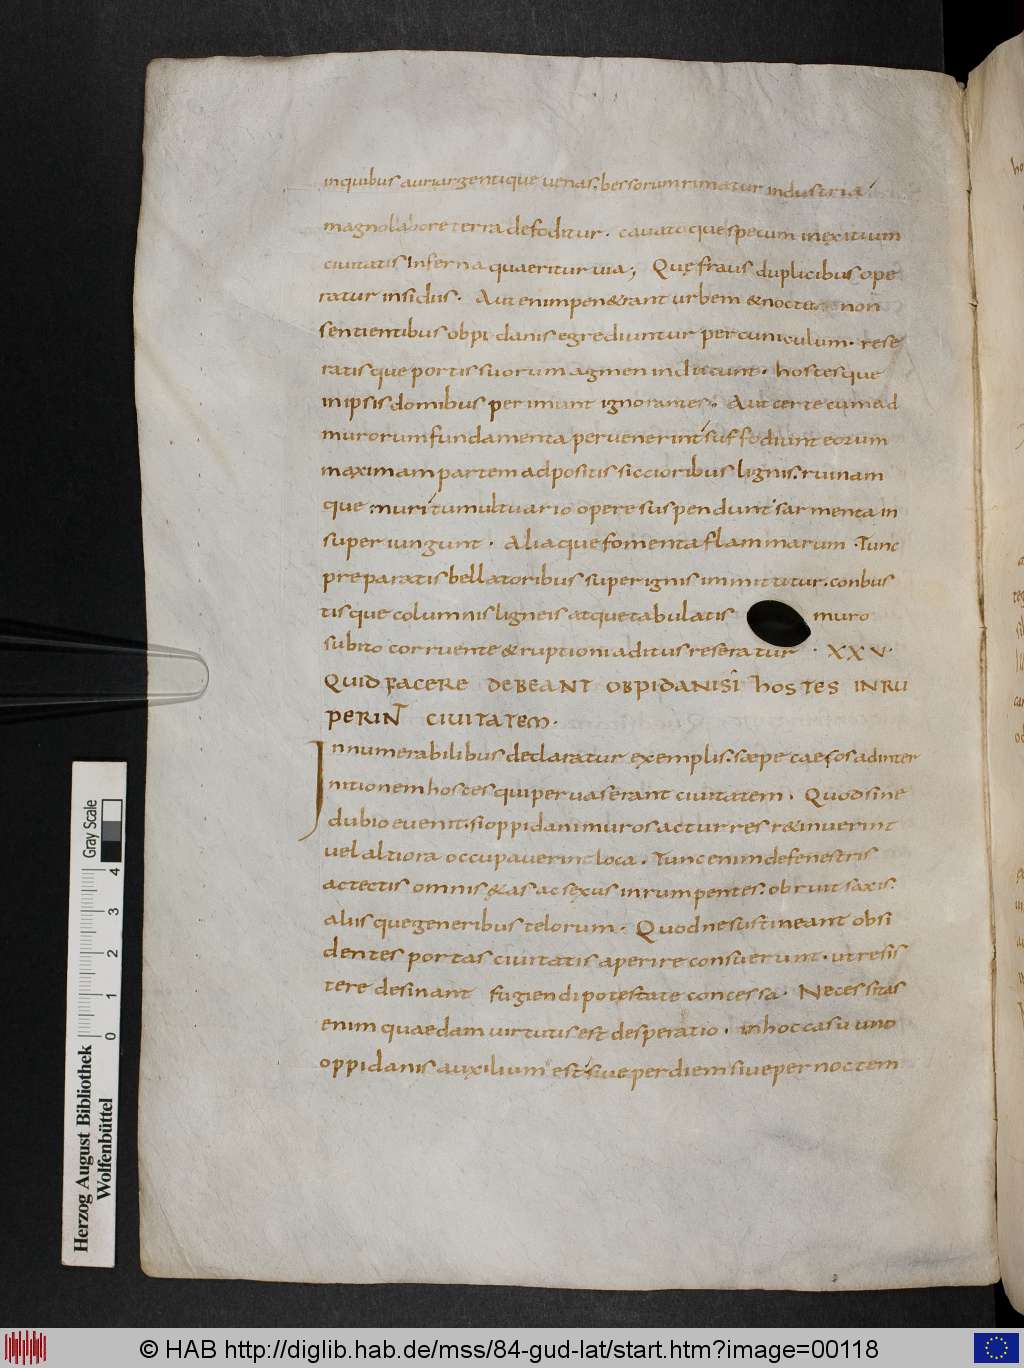 inquibus auriargentique uenas. bessorumrimatur industria.
magnolabore terra defoditur. cauatoque specum inexitium
ciuitatis Inferna quaeritur uia; Quę fraus duplicibus ope
ratur insidiis. Aut enimpen&rant urbem &noctu non
sentientibus obpidanis egrediuntur percuniculum. rese
ratisque portis suorum agmen inducunt. hostesque
inipsis domibus perimunt ignorantes. Aut certe cumad
murorum fundamenta peruenerint suffodiunt eorum
maximam partem adpositis siccioribus lignis. ruinam
que muri tumultuario opere suspendunt sarmenta in
super iungunt. Aliaque fomenta flammarum. Tunc
preparatis bellatoribus superignis immittitur. conbus
tisque columnis ligneis atquetabulatis muro
subito corruente &ruptioni aditus reseratur. XXV.
QUID FACERE DEBEANT OBPIDANI SI hOSTES INRU
PERINT CIUITATEM.
Innumerabilibus declaratur exemplis. sæpe caesos adinter
nitionem hostes quiperuaserant ciuitatem. Quodsine
dubio euenit. si oppidani muros acturres r&inuerint
uel altiora occupauerint loca. Tunc enim defenestris
actectis omnis &as ac sexus inrumpentes. obruit saxis.
aliisque generibus telorum. Quod ne sustineant obsi
dentes portas ciuitatis aperire consuerunt. ut resis
tere desinant fugiendi potestate concessa. Necessitas
enim quaedam uirtutis est desperatio. inhoc casu uno
oppidanis auxilium est siue perdiem siue per noctem
Herzog August Bibliothek
Wolfenbüttel
0 1 2 3 4
Gray Scale
© HAB http://diglib.hab.de/mss/84-gud-lat/start.htm?image=00118